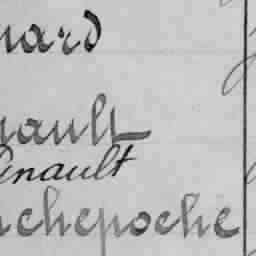 nard
nault
inault
chepoche